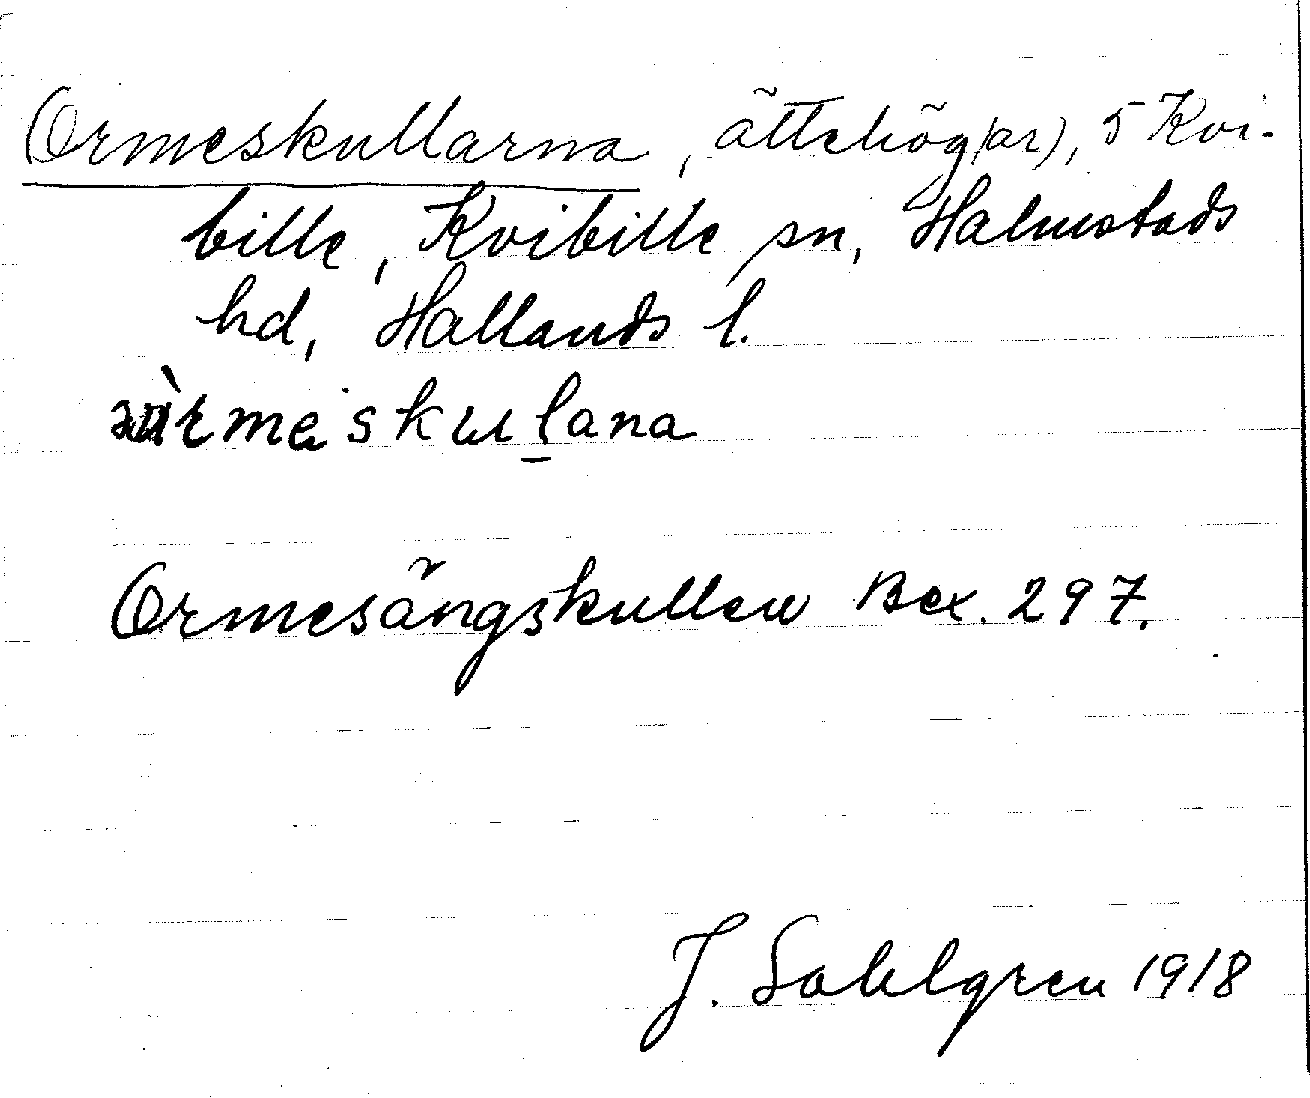 Ormeskullarna, ättehög(ar), 5 Kvi-
bille, Kvibille sn, Halmstads
hd, Hallands l.
Ormesängskullen Bex. 297.
J. Sahlgren 1918